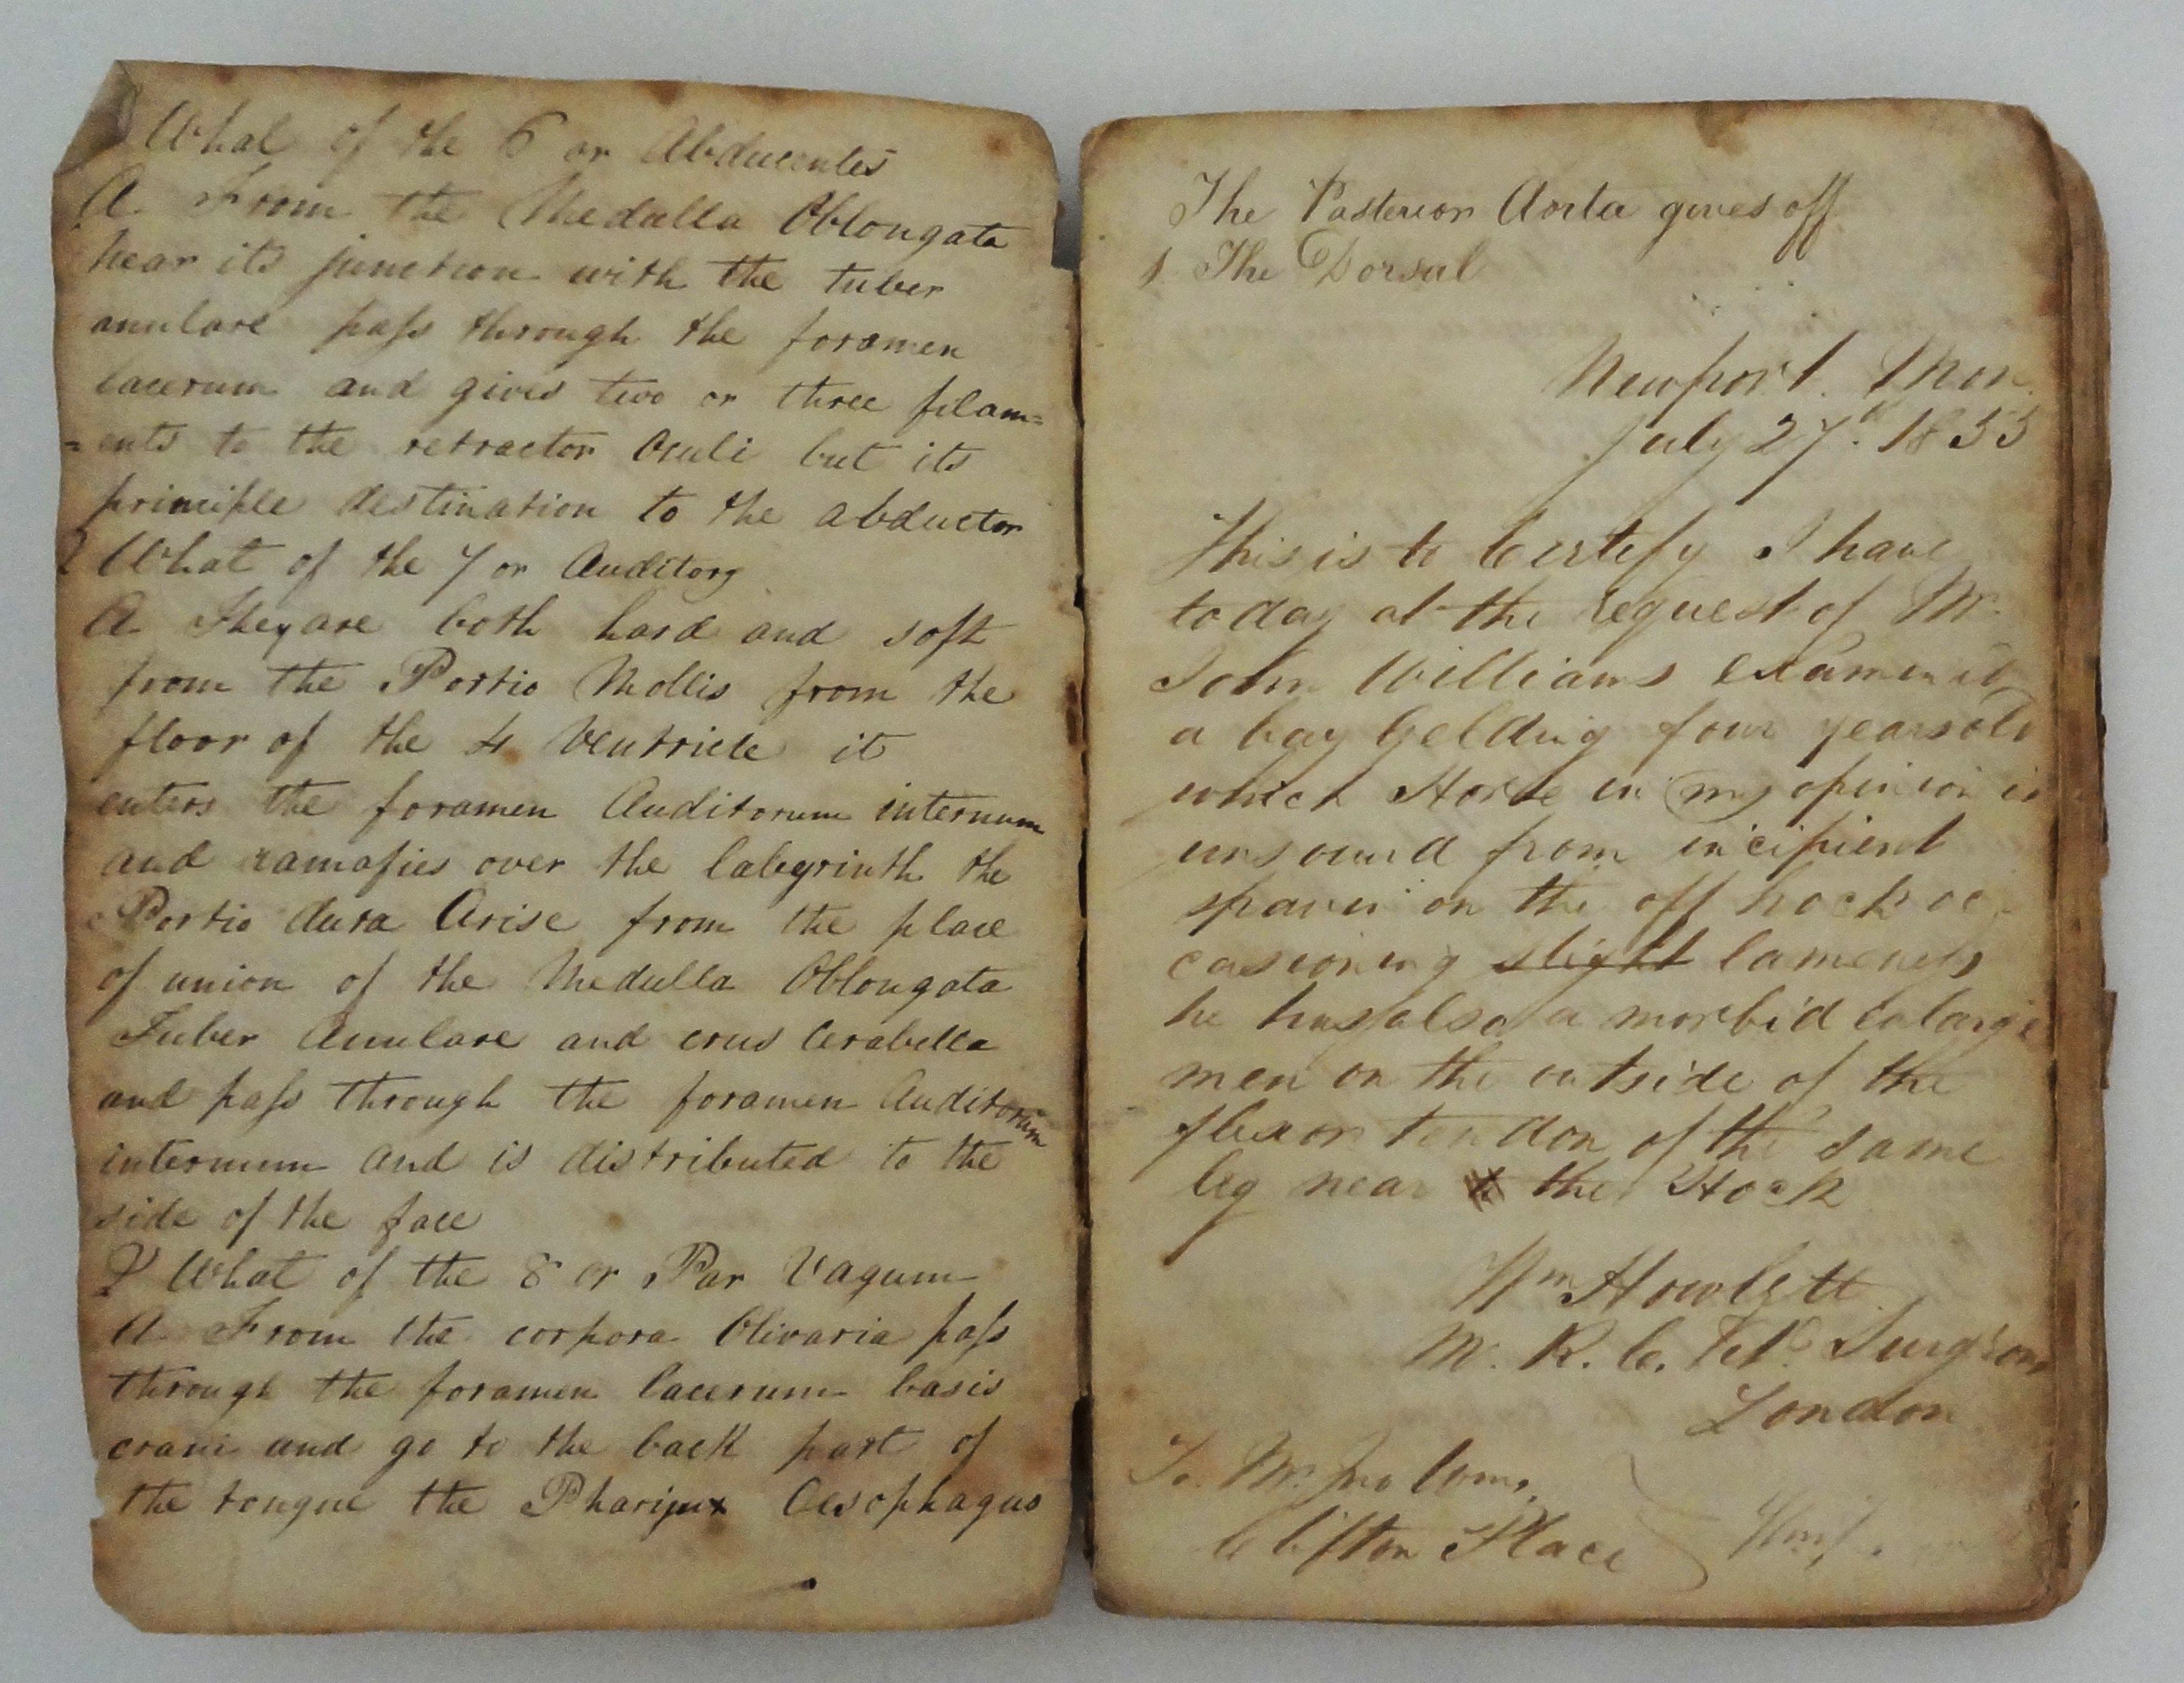 What of the 6 or Abducentes
A From the Medulla Oblongata
near its junction with the tuber
anulare pass through the foramen
lacerum and gives two or three filam=
=ents to the retractor Oculi but its
principle destination to the abductor
Q What of the 7 or Auditory
A They are both hard and soft
from the Portio Mollis from the
floor of the 4 Ventricle it
enters the foramen Auditorum internum
and ramafies over the labyrinth the
Portio dura Arise from the place
of union of the Medulla Oblongata
Tuber Anulare and crus Cerabella
and pass through the foramen Auditorum
internum and is distributed to the
side of the face
Q What of the 8 or Par Vagum
A From the corpora Olivaria pass
through the foramen lacerum basis
crani and go to the back part of
the tongue the Oesophagus
The Posterior Aorta gives off
1 The Dorsal
Newport. Mon.
July 27th. 1855
This is to Certify I have
today at the request of Mr.
John Williams examined
a bay Gelding four years old
which Horse in my opinion is
unsound from incipient
spavin on the off hock oc
casioning slight lameness
he has also a morbid enlarge
men on the outside of the
flexor tendon of the same
leg near the Hock
Wm Howlett
M. R. C. Vet. Surgeon
London
To. Mr. Jno Wms.
Clifton Place